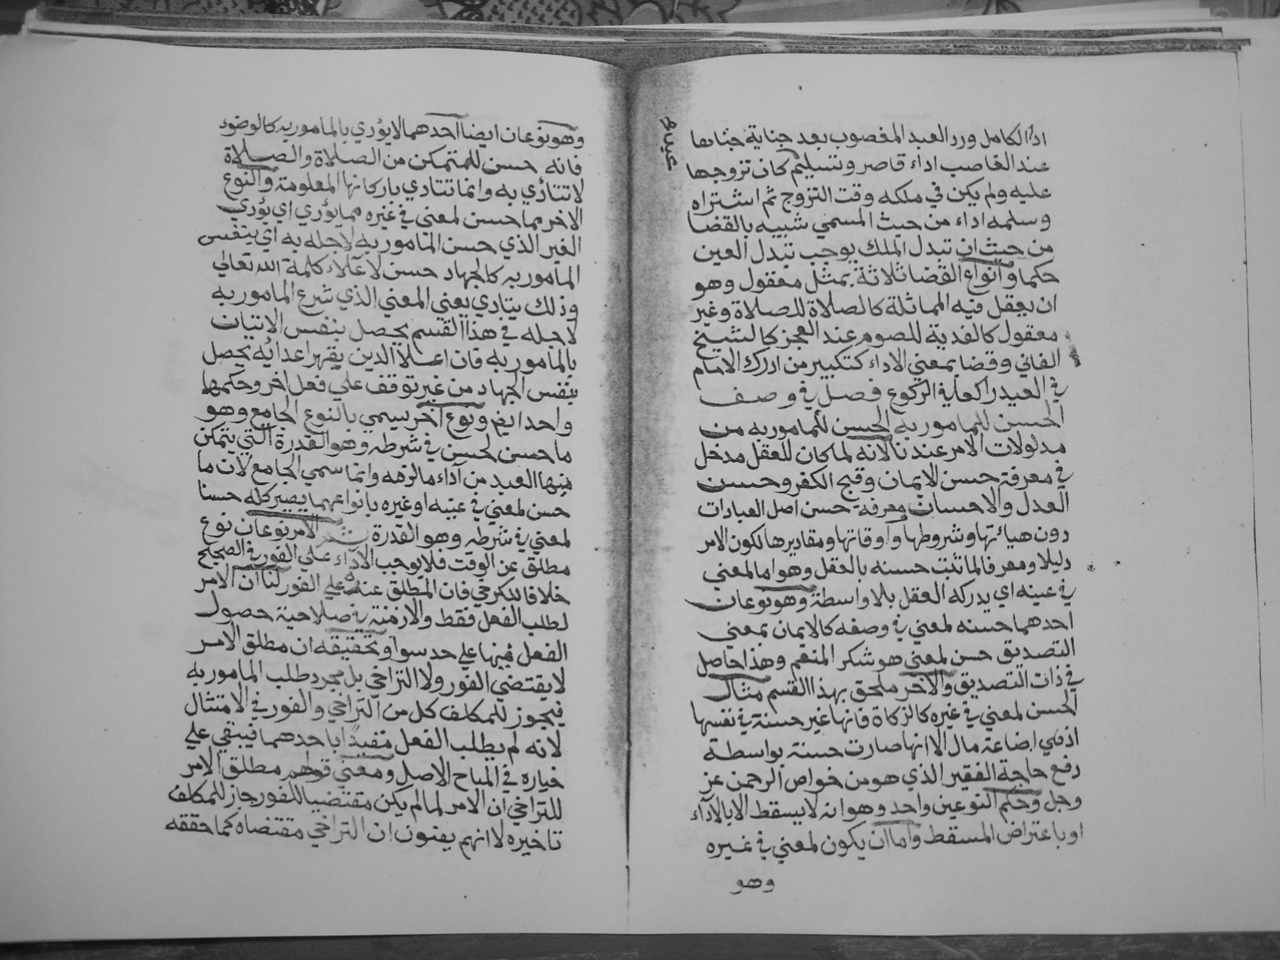 اداء الكامل ورد العبد المغصوب بعد جناية جناها
عند الغاصب اداء قاصر وتسليم كان تزوجها
عليه ولم يكن في ملكه وقت التزوج ثم اشتراه
وسلمه اداء من حيث المسمي شبيه بالقضا
من حيث ان تبدل الملك يوجب تبدل العين
حكما وانواع القضا ثلاثة بمثل معقول وهو
ان يعقل فيه المماثلة كالصلاة للصلاة وغير
معقول كالفدية للصوم عند العجز كالشيخ
الفاني وقضا بمعني الاداء كتكبير من ادرك الامام
في العيد راكعا في الركوع فصل في وصف
الحسن للمامور به الحسن للمامور به من
مدلولات الامر عندنا لانه لما كان للعقل مدخل
في معرفة حسن الايمان وقبح الكفر وحسن
العدل والاحسان ومعرفة حسن اصل العبادات
دون هيأتها وشروطها واوقاتها ومقاديرها لكون الامر
دليلا ومعرفا لما ثبت حسنه بالعقل وهو اما لمعني
في عينه اي يدركه العقل بلا واسطة وهو نوعان
احدهما حسنه لمعني في وصفه كالايمان بمعني
التصديق حسن لمعني هو شكر المنعم وهذا حاصل
في ذات التصديق والاخر ملحق بهذا القسم مثال
الحسن لمعني في غيره كالزكاة فانها غير حسنة في نفسها
اذ هي اضاعة مال الا انها صارت حسنة بواسطة
رفع حاجة الفقير الذي هو من خواص الرحمن عز
وجل وحكم النوعين واحد وهو انه لا يسقط الا بالاداء
او باعتراض المسقط واما ان يكون لمعني في غيره
وهو
وهو نوعان ايضا احدهما لا يؤدي بالمامور به كالوضوء
فانه حسن للمتمكن من الصلاة والصلاة
لا تتادي به وانما تتادي باركانها المعلومة والنوع
الاخر مما حسن لمعني في غيره مما يؤدي اي يؤدي
الغير الذي حسن المامور به لاجله به اي بنفس
المامور به كالجهاد حسن لاعلاء كلمة الله تعالي
وذلك يتادي يعني المعني الذي شرع المامور به
لاجله في هذا القسم يحصل بنفس الاتيان
بالمامور به فان اعلاء الدين بقهر اعدائه يحصل
بنفس الجهاد من غير توقف علي فعل اخر وحكمهما
واحد ايضا ونوع اخر سمي بالنوع الجامع وهو
ما حسن لحسن في شرطه وهو القدرة التي يتمكن
منها العبد من اداء ما لزمه وانما سمي الجامع لان ما
حسن لمعني في عينه او غيره بانواعهما يصير كله حسنا
لمعني في شرطه وهو القدرة ثم الامر نوعان نوع
مطلق عن الوقت فلا يوجب الاداء علي الفور في الصحيح
خلافا للكرخي فان المطلق عنده علي الفور لنا ان الامر
لطلب الفعل فقط والازمنة في صلاحية حصول
الفعل فيها علي حد سوا وتحقيقه ان مطلق الامر
لا يقتضي الفور ولا التراخي بل مجرد طلب المامور به
فيجوز للمكلف كل من التراخي والفور في الامتثال
لانه لم يطلب الفعل مقيدا باحدهما فيبقي علي
خياره في المباح الاصل ومعني قولهم مطلق الامر
للتراخي ان الامر لما لم يكن مقتضيا للفور جاز للمكلف
تاخيره لا انهم يعنون ان التراخي مقتضاه كما حققه